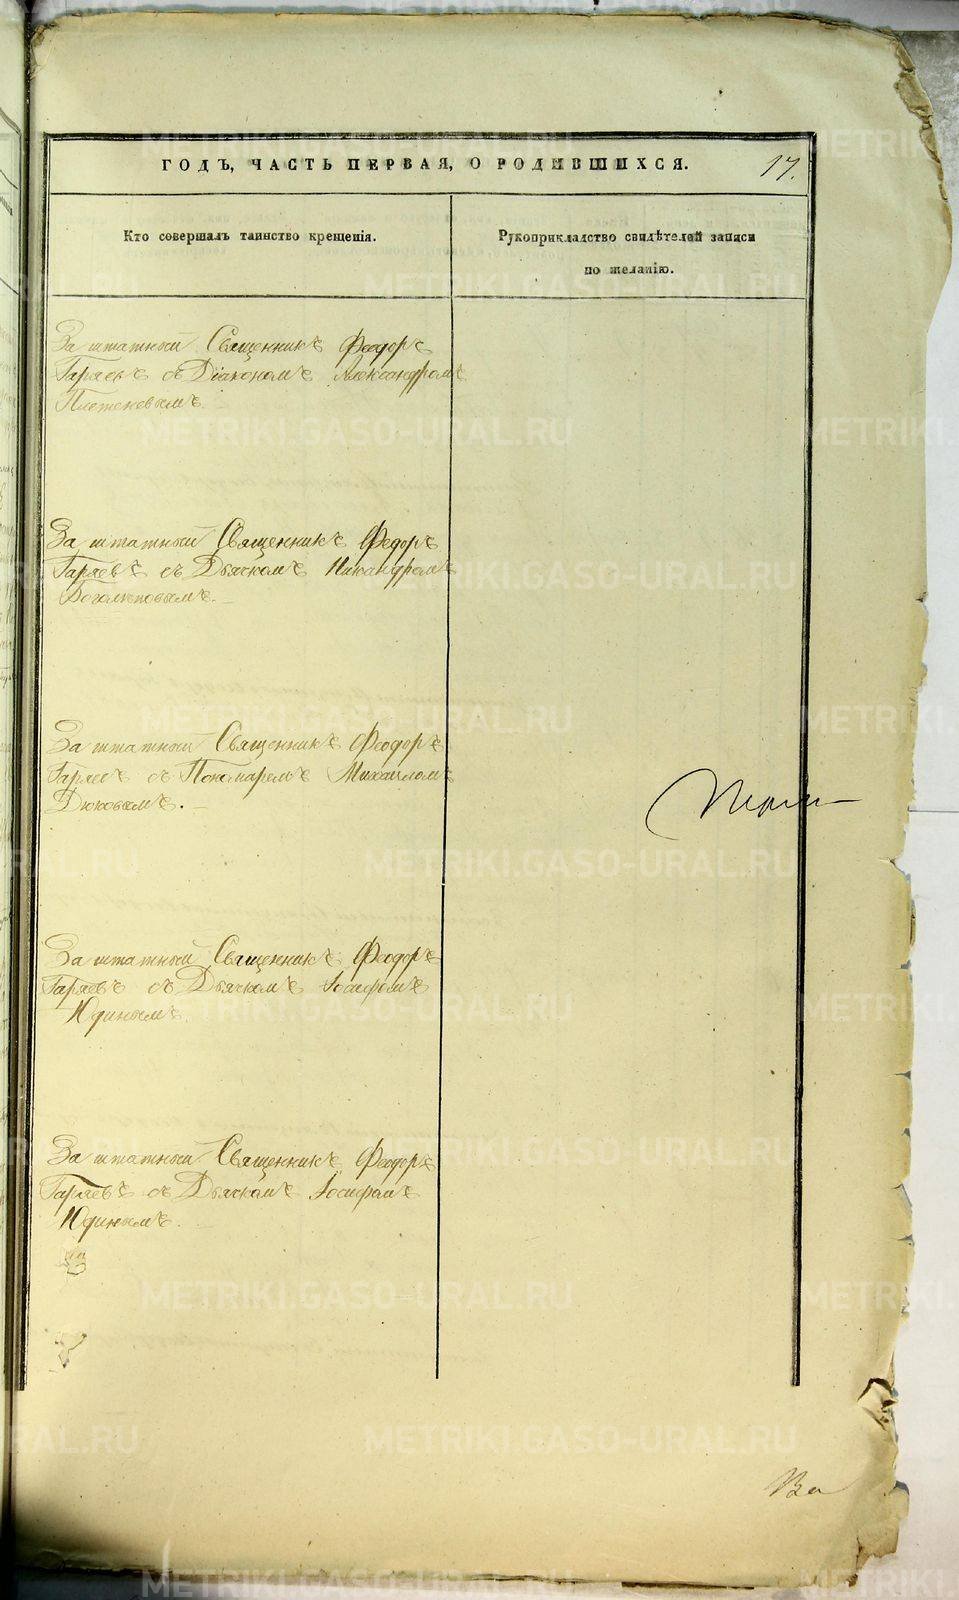 ГОДЪ, ЧАСТЬ ПЕРВАЯ, О РОДИВШИХСЯ.
17.
Кто совершалъ таинство крещенія.
Рукоприкладство свидѣтелей записи
по желанію.
Заштатный Священникъ Феодоръ
Гаряевъ съ Діакономъ Александромъ
Плетеневымъ.
Заштатный Священникъ Феодоръ
Гаряевъ съ Дьячкомъ Никандромъ
Боголеповымъ.
Заштатный Священникъ Феодоръ
Гаряевъ съ Пономаремъ Михаиломъ
Дюковымъ.
Заштатный Священникъ Феодоръ
Гаряевъ съ Дьячкомъ Іосифомъ
Юдинымъ.
Заштатный Священникъ Феодоръ
Гаряевъ съ Дьячкомъ Іосифомъ
Юдинымъ.
METRIKI.GASO-URAL.RU